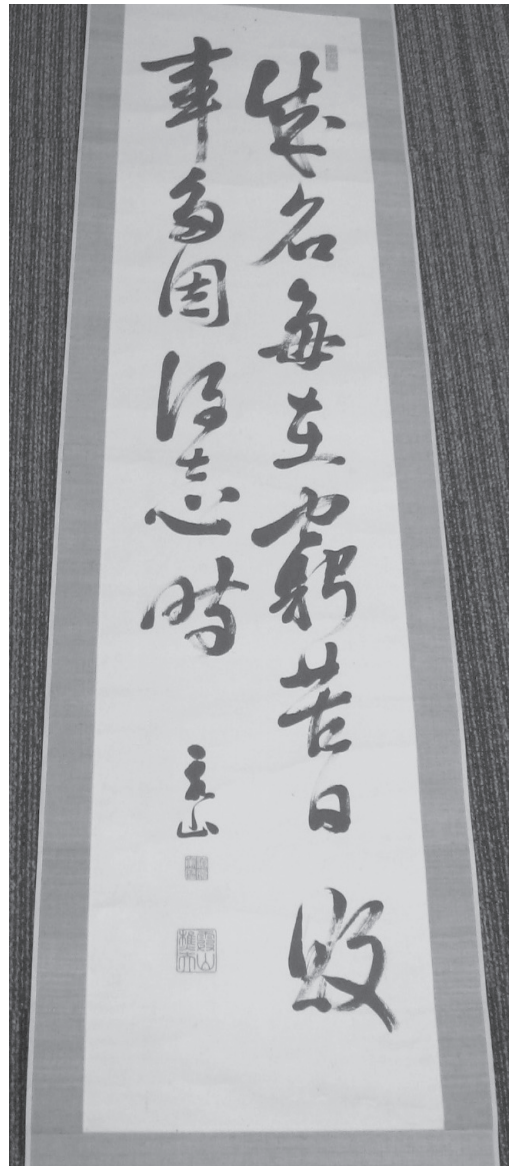 成名毎在窮苦日敗
事多因得志時
山